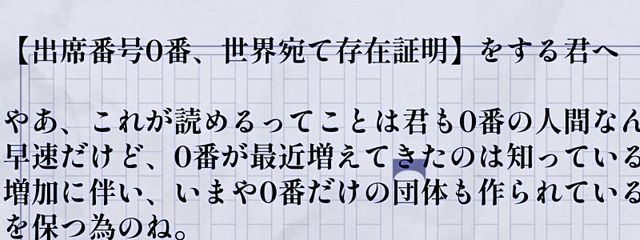 【出席番号0番、世界宛て存在証明】をする君へ
やあ、これが読めるってことは君も0番の人間なん
早速だけど、0番が最近増えてきたのは知っている
増加に伴い、いまや0番だけの団体も作られている
を保つ為のね。